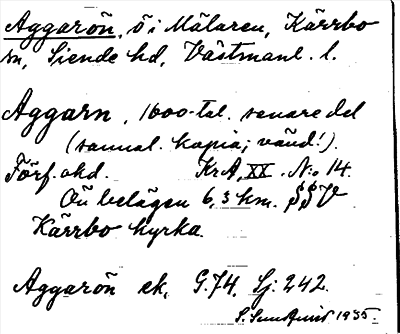 Aggarön, ö i Mälaren, Kärrbo
sn, Siende hd, Västmanl. l.
Aggarn, 1600-tal. senare del
(sannol. kopia; vänd!).
Förf. okd. KrA, XX. N:o 14.
Ön belägen 6,3 km. SSV
Kärrbo kyrka.
Aggarön ek, G.74, Sj: 242.
S. 1935.